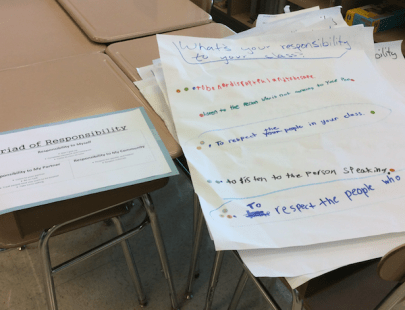 riad of Responsibility
Responsibility to Myself
Responsibility to My Partner
Responsibility to My Community
What's your responsibility
to your class?
bility
listen to the
To respect the people in your class.
to listen to the person speaking.
To
respect the people who